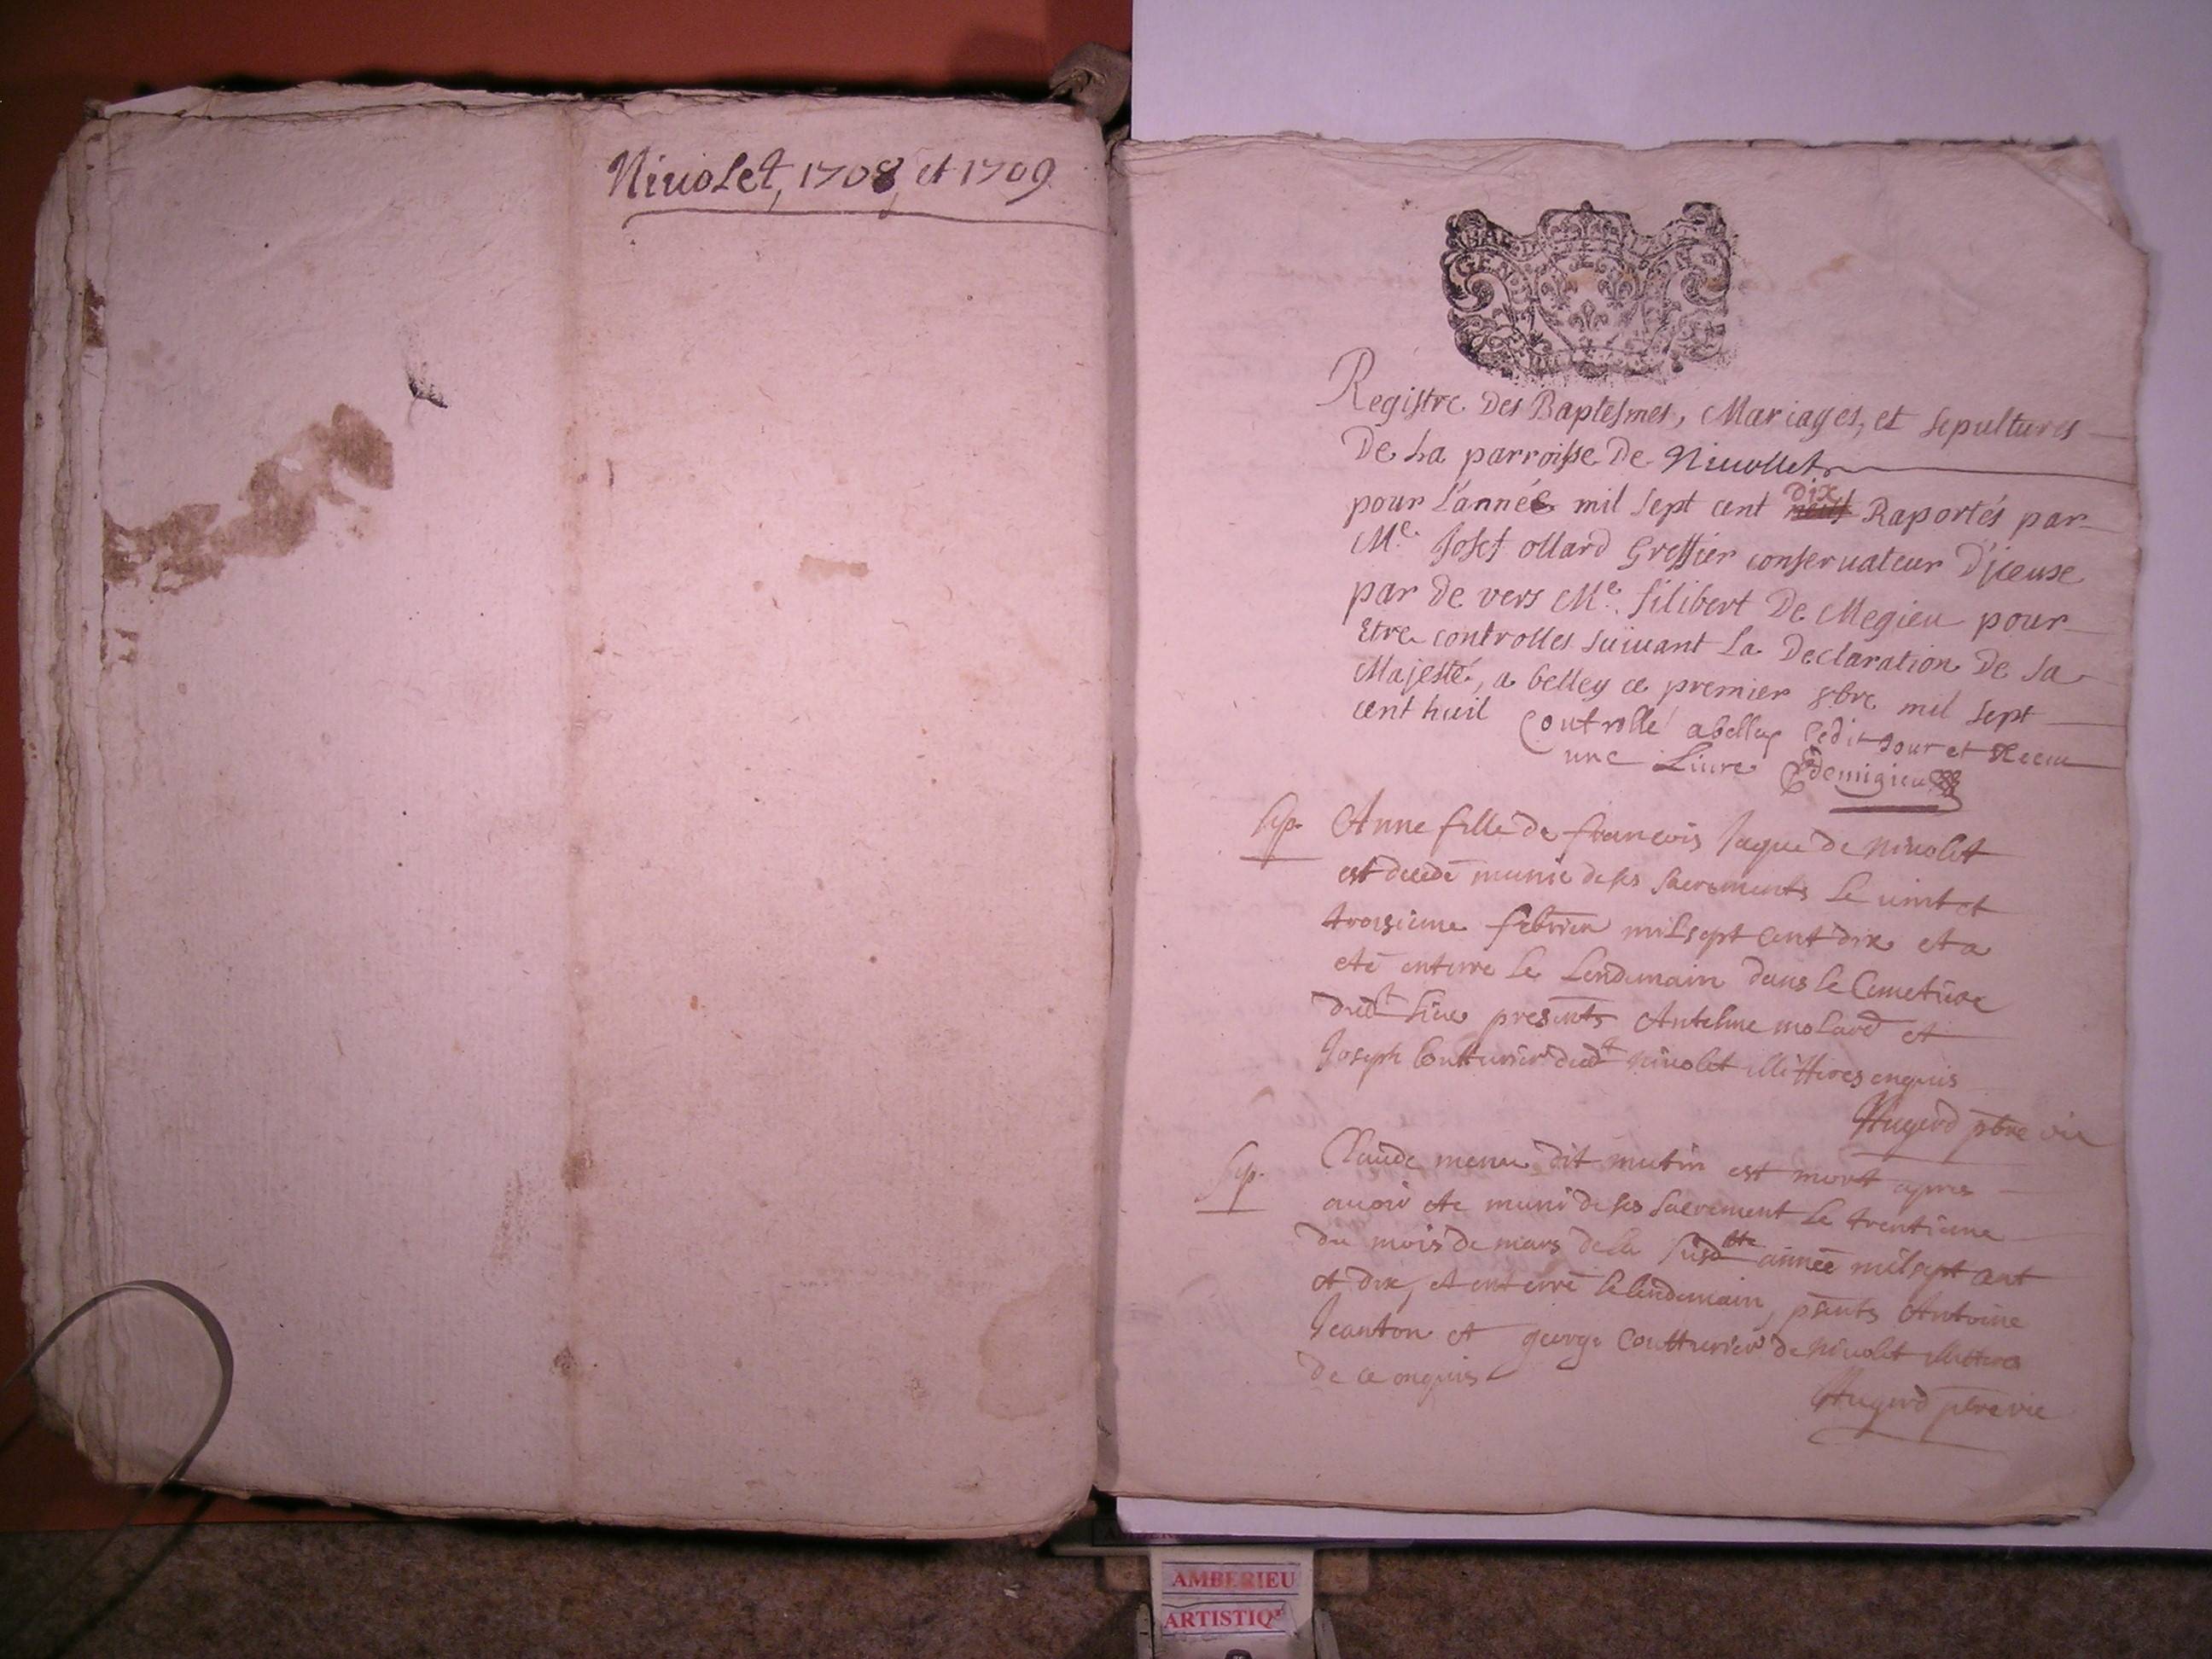 Niuolet, 1708, et 1709
GEN
Registre Des Baptesmes, Mariages, et sepultures
De La parroisse De Niuollet
pour L'année mil sept cent neuf dix Raportés par
Me Josef ollard Greffier conseruateur D'jceuse
par de vers Me. filibert De Megieu pour
Etre controlles suiuant La Declaration De Sa
Majesté, a belley ce premier 8bre mil sept
cent huit
Controllé a belley Ledit Jour et Receu
une Liure Demigieu
Sep. Anne fille de francois Jaque de niuolet
est decedé munie de ses sacrements Le uint et
troisieme febrier mil sept cent dix et a
eté enterre Le Lendemain dans le Cemetiere
dudt Lieu presents Antelme molard et
Joseph Coutturier dudt niuolet illitteres enquis
Hugerd pbre vic
Sep. Claude menu dit mutin est mort apres
auoir ete muni de ses sacrement Le trentieme
du mois de mars de la susdtte année mil sept cent
et dix, et enterré le lendemain, psents Antoine
Jeanton et george Coutturier de niuolet illitteres
de ce enquis
Hugerd pbre vic
AMBERIEU
ARTISTIQ